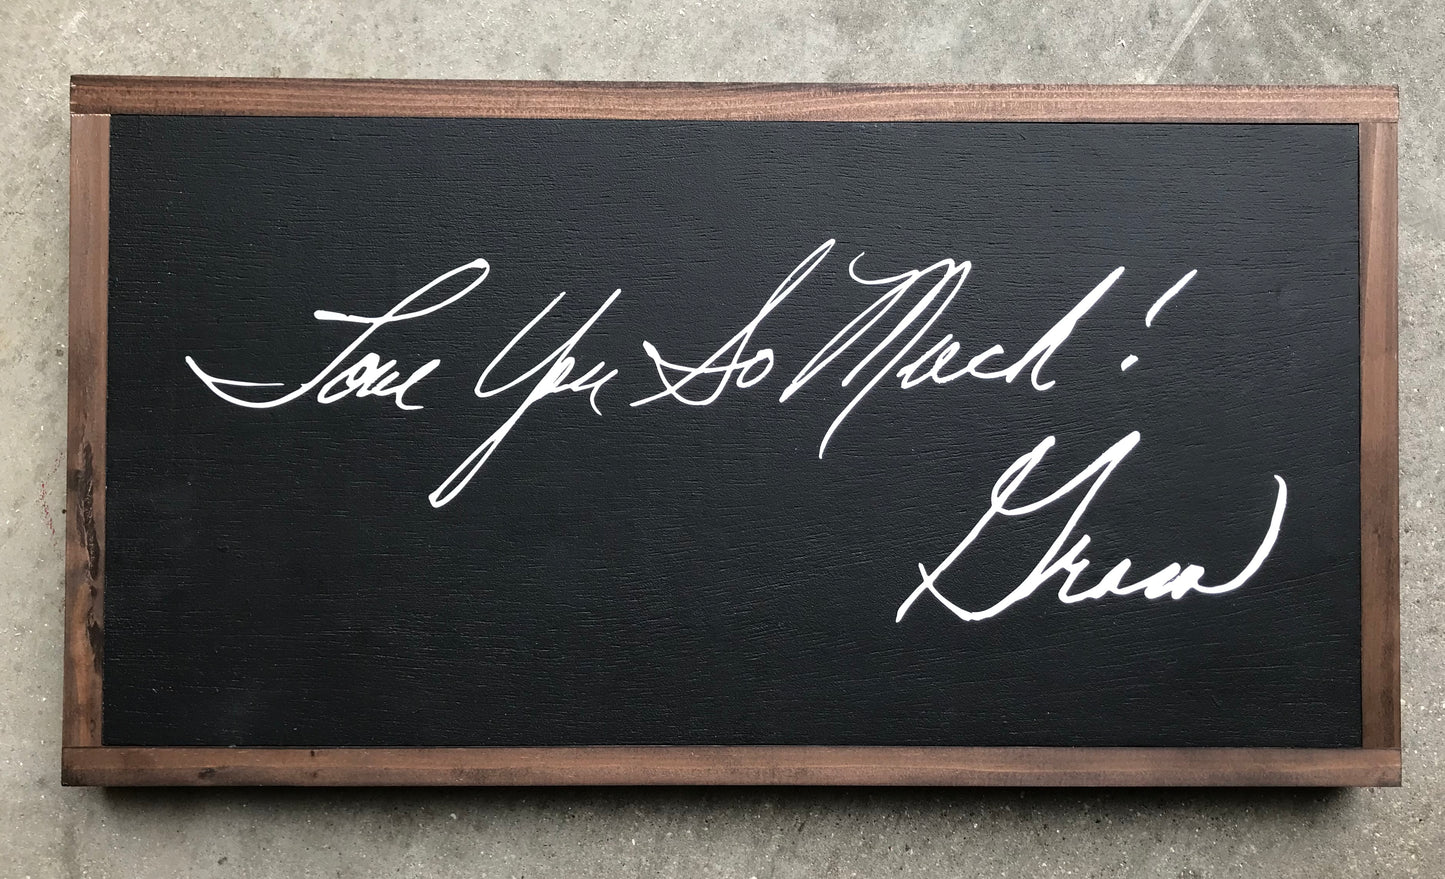 Love You So Much!
Gram